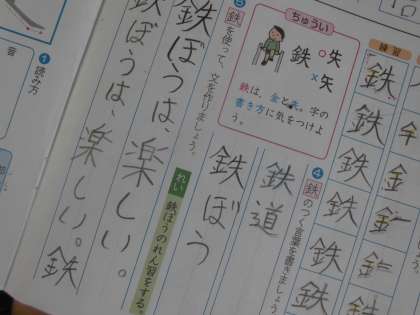 練習
鉄
鉄
鉄
鉄
鉄
鉄
金
ちゅうい
鉄
○失
×矢
鉄は、金と失。字の
書き方に気をつけよ
う。
4 鉄のつく言葉を書きましょう
鉄道
鉄ぼう
鉄を使って、文を作りましょう。
れい 鉄ぼうのれん習をする。
鉄ぼうは、楽しい。
鉄ぼうは、楽しい。鉄
1 読み方
音